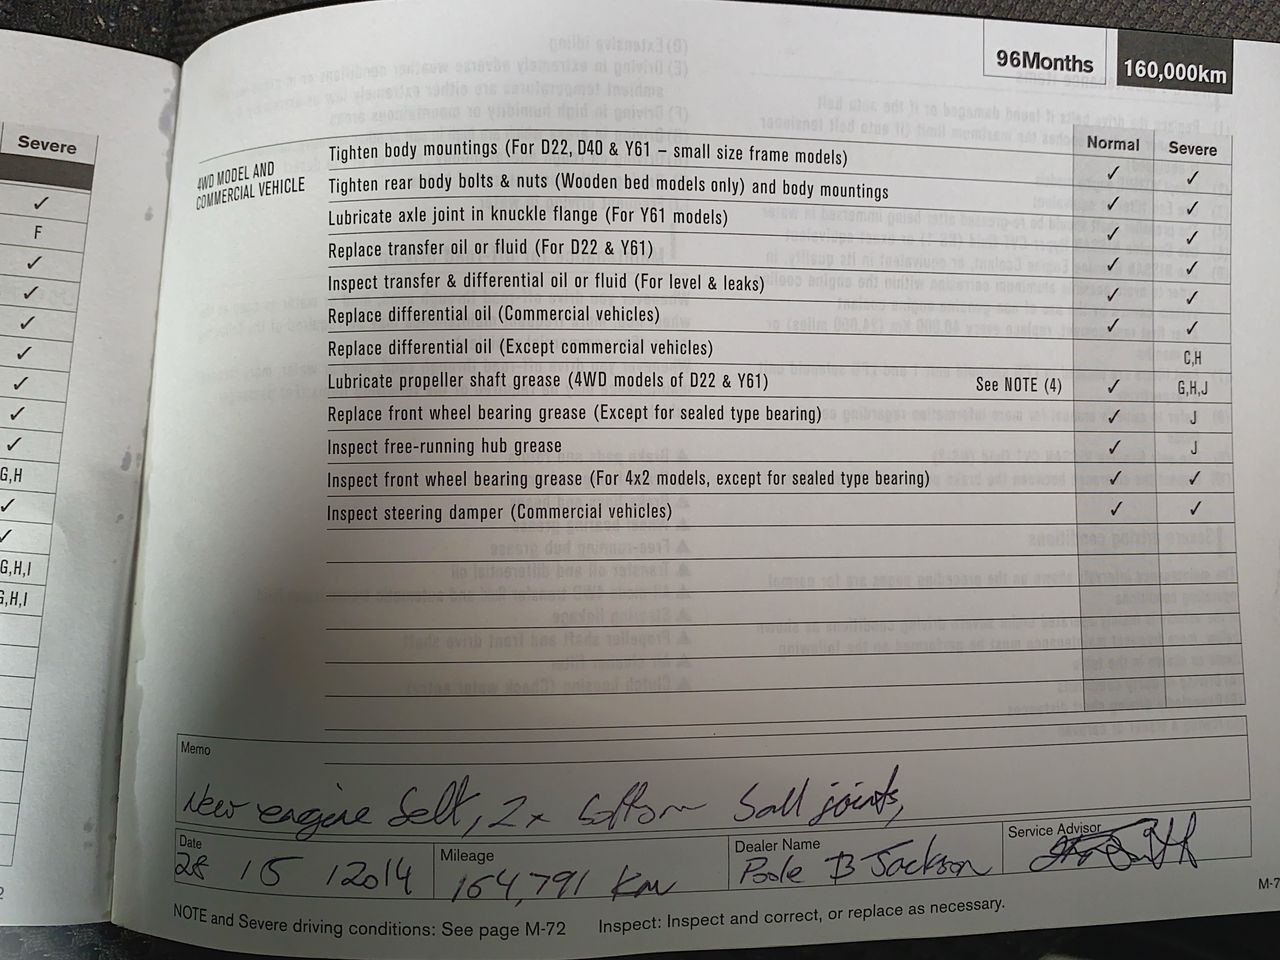 96Months 160,000km
Severe
✓
F
✓
✓
✓
✓
✓
✓
✓
G,H
✓
✓
G,H,I
G,H,I
4WD MODEL AND
COMMERCIAL VEHICLE
Normal Severe
Tighten body mountings (For D22, D40 & Y61 – small size frame models) ✓ ✓
Tighten rear body bolts & nuts (Wooden bed models only) and body mountings ✓ ✓
Lubricate axle joint in knuckle flange (For Y61 models) ✓ ✓
Replace transfer oil or fluid (For D22 & Y61) ✓ ✓
Inspect transfer & differential oil or fluid (For level & leaks) ✓ ✓
Replace differential oil (Commercial vehicles) ✓ ✓
Replace differential oil (Except commercial vehicles) C,H
Lubricate propeller shaft grease (4WD models of D22 & Y61) See NOTE (4) ✓ G,H,J
Replace front wheel bearing grease (Except for sealed type bearing) ✓ J
Inspect free-running hub grease ✓ J
Inspect front wheel bearing grease (For 4x2 models, except for sealed type bearing) ✓ ✓
Inspect steering damper (Commercial vehicles) ✓ ✓
Memo
New engine belt, 2x bottom ball joints,
Date Mileage Dealer Name Service Advisor
28 / 5 / 2014 164,791 Km Poole B Jackson
NOTE and Severe driving conditions: See page M-72 Inspect: Inspect and correct, or replace as necessary.